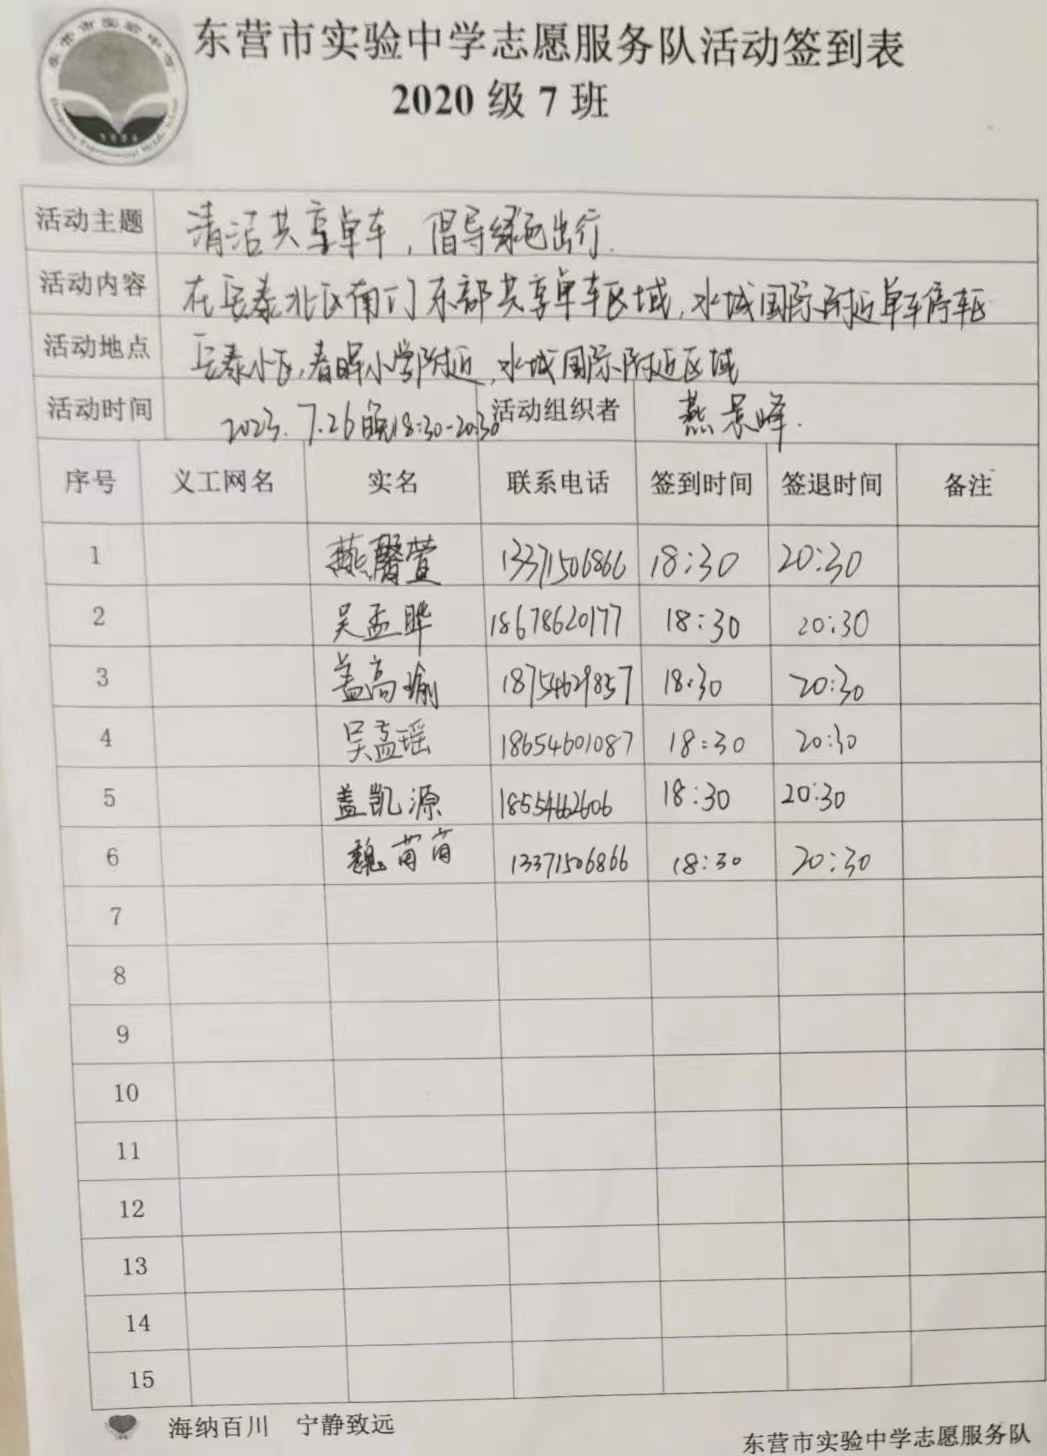 东营市实验中学志愿服务队活动签到表
2020 级 7 班
活动主题 清洁共享单车，倡导绿色出行.
活动内容 在长泰北区南门东部共享单车区域,水城国际附近单车停车区
活动地点 长泰小区,春晖小学附近,水城国际附近区域
活动时间 2023.7.26晚18:30-20:30 活动组织者 燕景峰.
序号 义工网名 实名 联系电话 签到时间 签退时间 备注
1 燕馨萱 13371506866 18:30 20:30
2 吴孟晔 18678620177 18:30 20:30
3 盖高瑜 18754629857 18:30 20:30
4 吴孟瑶 18654601087 18:30 20:30
5 盖凯源 18554662606 18:30 20:30
6 魏苗苗 13371506866 18:30 20:30
7
8
9
10
11
12
13
14
15
海纳百川 宁静致远
东营市实验中学志愿服务队